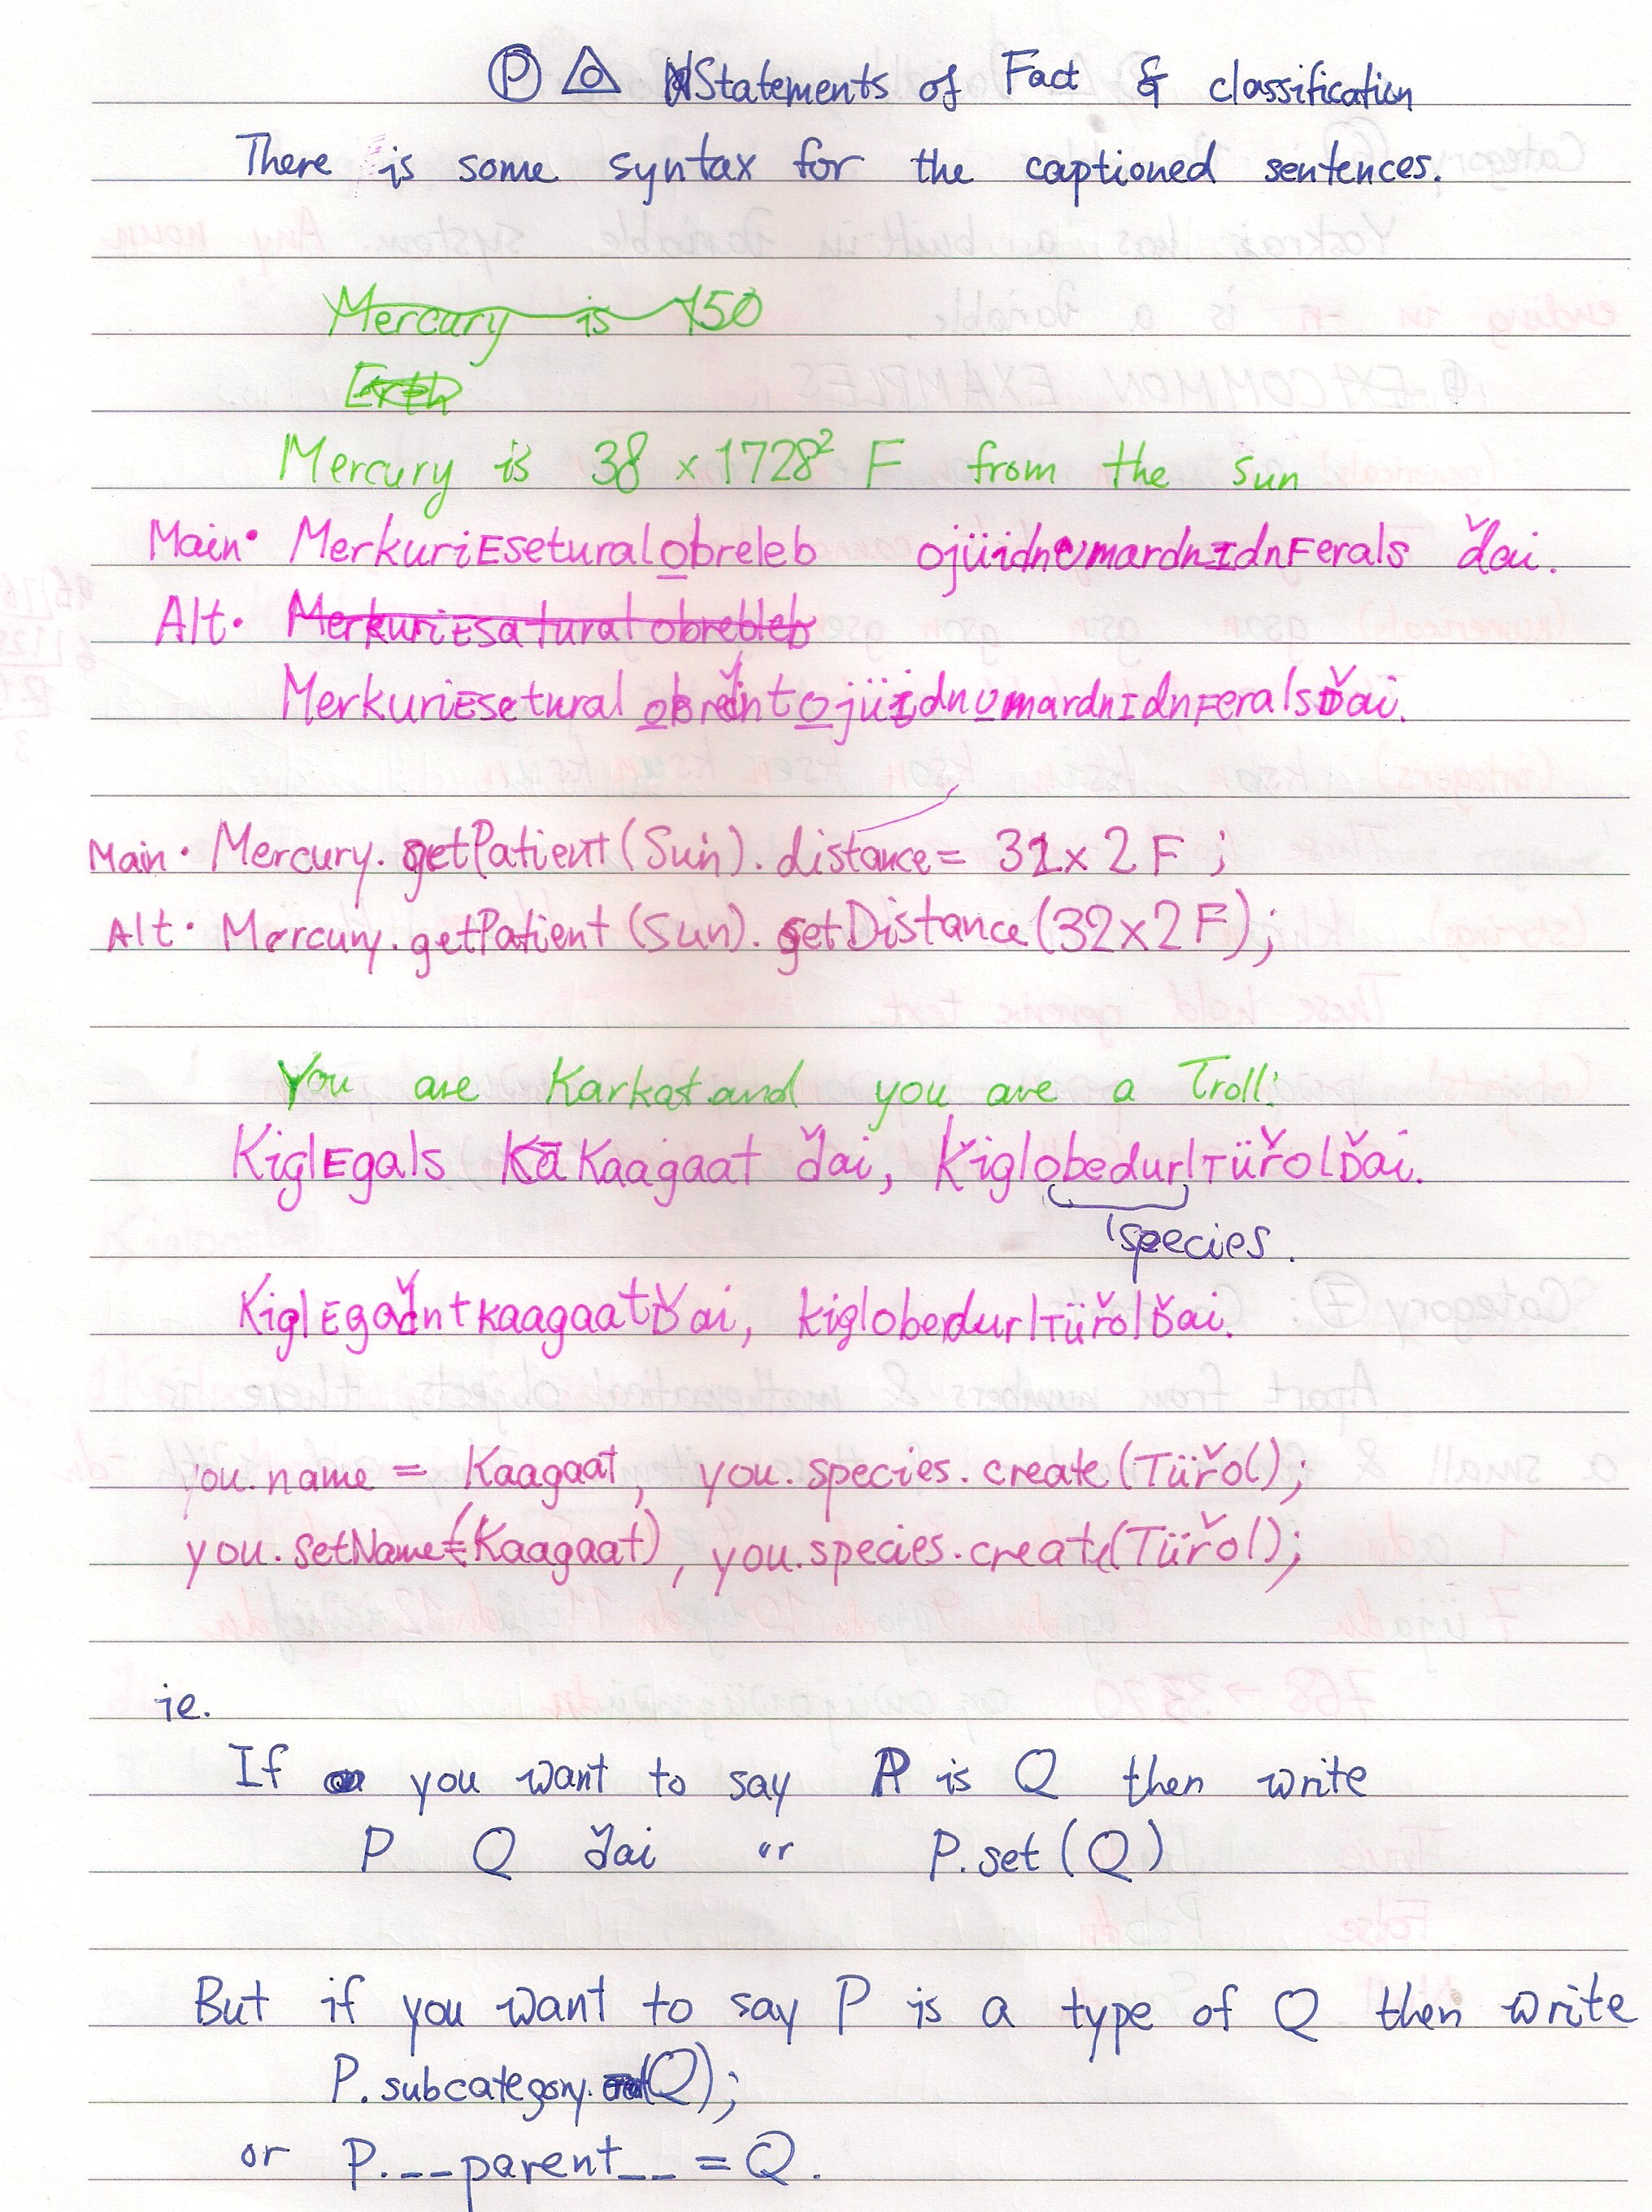 Ⓟ Statements of Fact & classification
There is some syntax for the captioned sentences.
Mercury is 150
Mercury is 38 × 1728² F from the sun
Main· MerkuriEseturalobreleb ojüidnUmardnIdnFerals ďai.
Alt· MerkuriEsatural obrebleb
MerkuriEsetural obreďntojüidnUmardnIdnFeralsĎai.
Main· Mercury.getPatient(Sun).distance = 32×2F;
Alt· Mercury.getPatient(Sun).setDistance(32×2F);
You are Karkat and you are a Troll.
KiglEgals Kaagaat ďai, KiglobedurlTüřolĎai.
species.
KiglEgaďntkaagaatĎai, kiglobedurlTüřolĎai.
you.name = Kaagaat, you.species.create(Tüřol);
you.setName(Kaagaat), you.species.create(Tüřol);
ie.
If you want to say P is Q then write
P Q ďai or P.set(Q)
But if you want to say P is a type of Q then write
P.subcategory.(Q);
or P.__parent__ = Q.